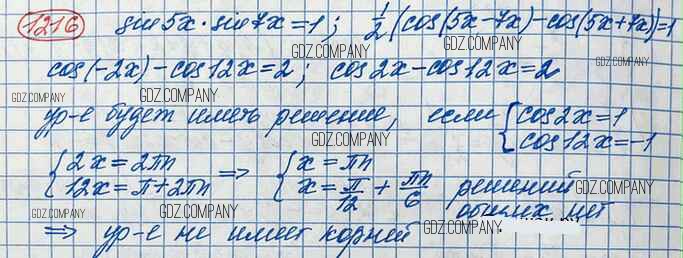 1216 sin5x·sin7x=1; 1/2(cos(5x-7x)-cos(5x+7x))=1
GDZ.COMPANY GDZ.COMPANY
cos(-2x)-cos12x=2; cos2x-cos12x=2
GDZ.COMPANY GDZ.COMPANY GDZ.COMPANY
ур-е будет иметь решение, если { cos2x=1
cos12x=-1
GDZ.COMPANY
{ 2x=2πn => { x=πn
12x=π+2πn x=π/12+πn/6 решений
GDZ.COMPANY
общих нет
GDZ.COMPANY GDZ.COMPANY
=> ур-е не имеет корней
GDZ.COMPANY GDZ.COMPANY